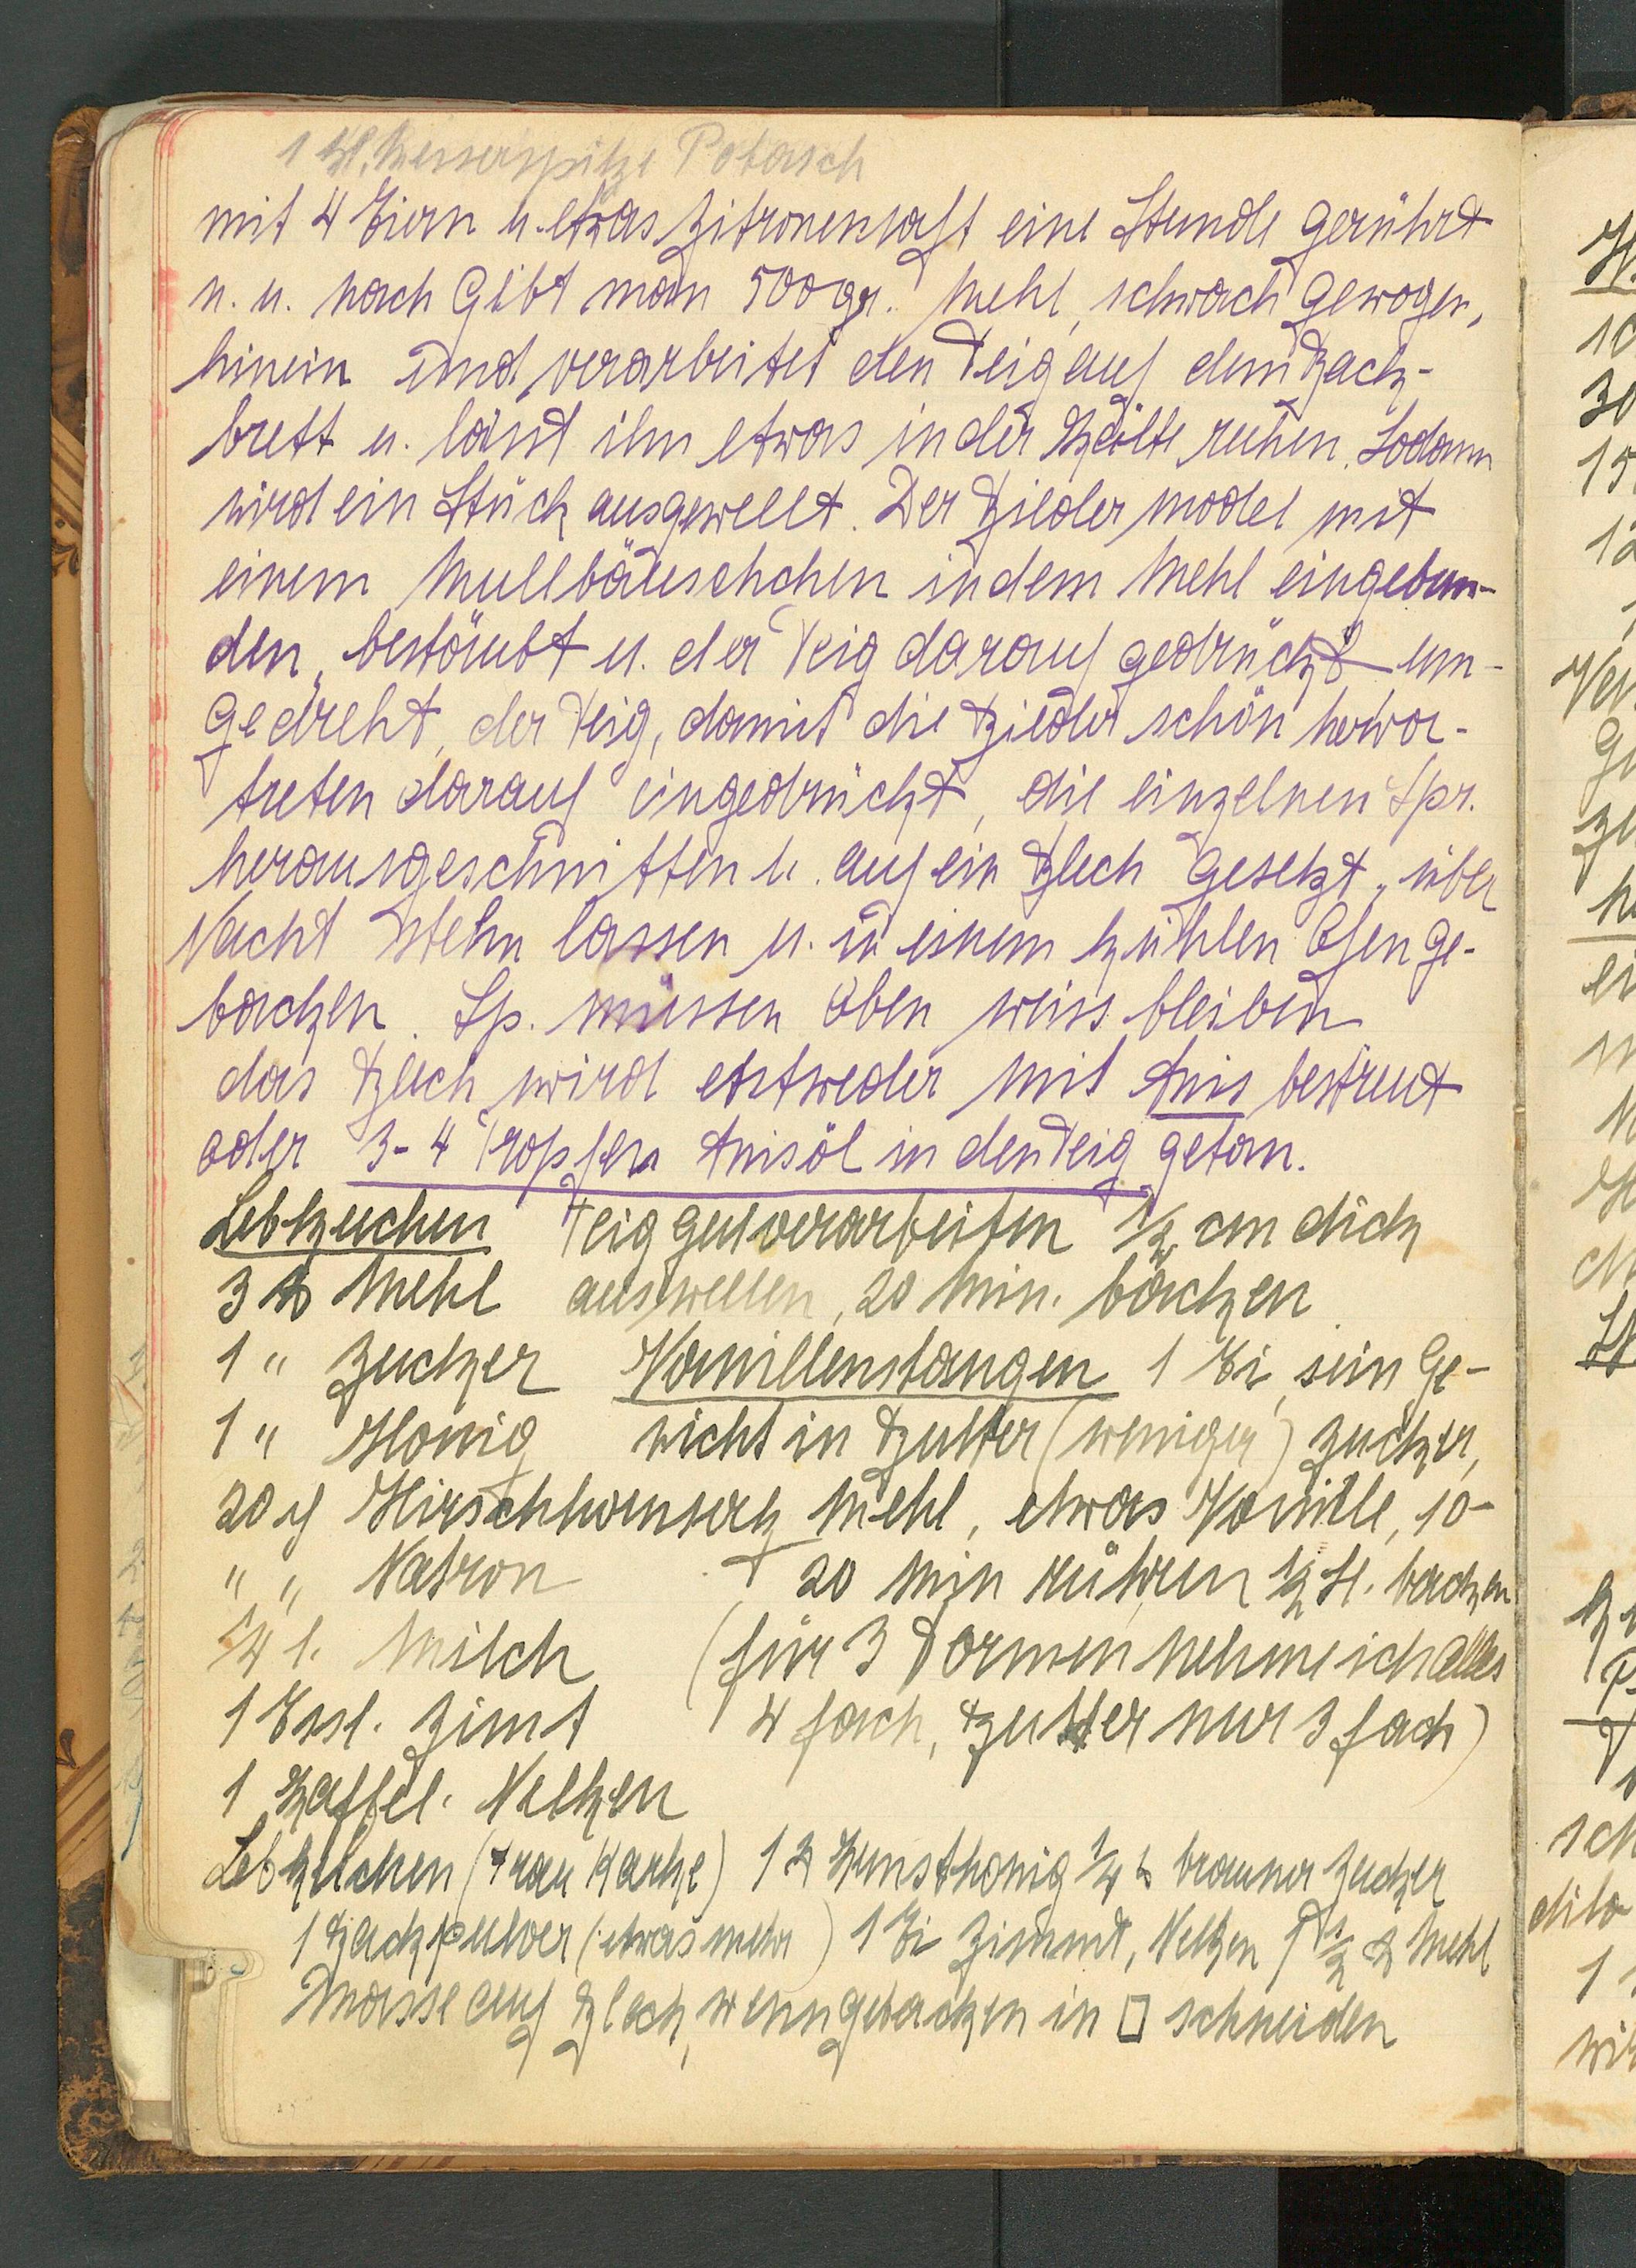 1 kl. Messerspitze Potasch
mit 4 Eiern u. etwas Zitronensaft eine Stunde gerührt
n. u. nach gibt man 500 gr. Mehl, schwach gewogen,
hinein und verarbeitet den Teig auf dem Back-
brett u. lässt ihn etwas in der Kälte ruhen. Sodann
wird ein Stück ausgewellt. Der Bilder model mit
einem Mullbäuschchen in dem Mehl eingebun-
den, bestäubt u. der Teig darauf gedrückt um-
gedreht, der Teig, damit die Bilder schön hervor-
treten darauf eingedrückt, die einzelnen Spr.
herausgeschnitten u. auf ein Blech gesetzt, über
Nacht stehn lassen u. in einem kühlen Ofen ge-
backen. Sp. müssen oben weiss bleiben
das Blech wird entweder mit Anis bestreut
oder 3-4 Tropfen Anisöl in den Teig getan.
Lebkuchen Teig gut verarbeiten 1/2 cm dick
3 ℔ Mehl auswellen, 20 Min. backen
1 " Zucker Vanillenstangen 1 Ei, sein Ge-
1 " Honig wicht in Butter (weniger) Zucker,
20 g Hirschhornsalz Mehl, etwas Vanille, 10-
" " Natron 20 Min rühren 1/2 St. backen
1/4 l. Milch (für 3 Formen nehme ich alles
1 Essl. Zimt 4 fach, Butter nur 3 fach)
1 Kaffel. Nelken
Lebkuchen (Frau Harke) 1 ℔ Kunsthonig 1/4 ℔ brauner Zucker
1 Backpulver (etwas mehr) 1 Ei Zimmt, Nelken 1 1/2 ℔ Mehl
Masse auf Blech, wenn gebacken in □ schneiden